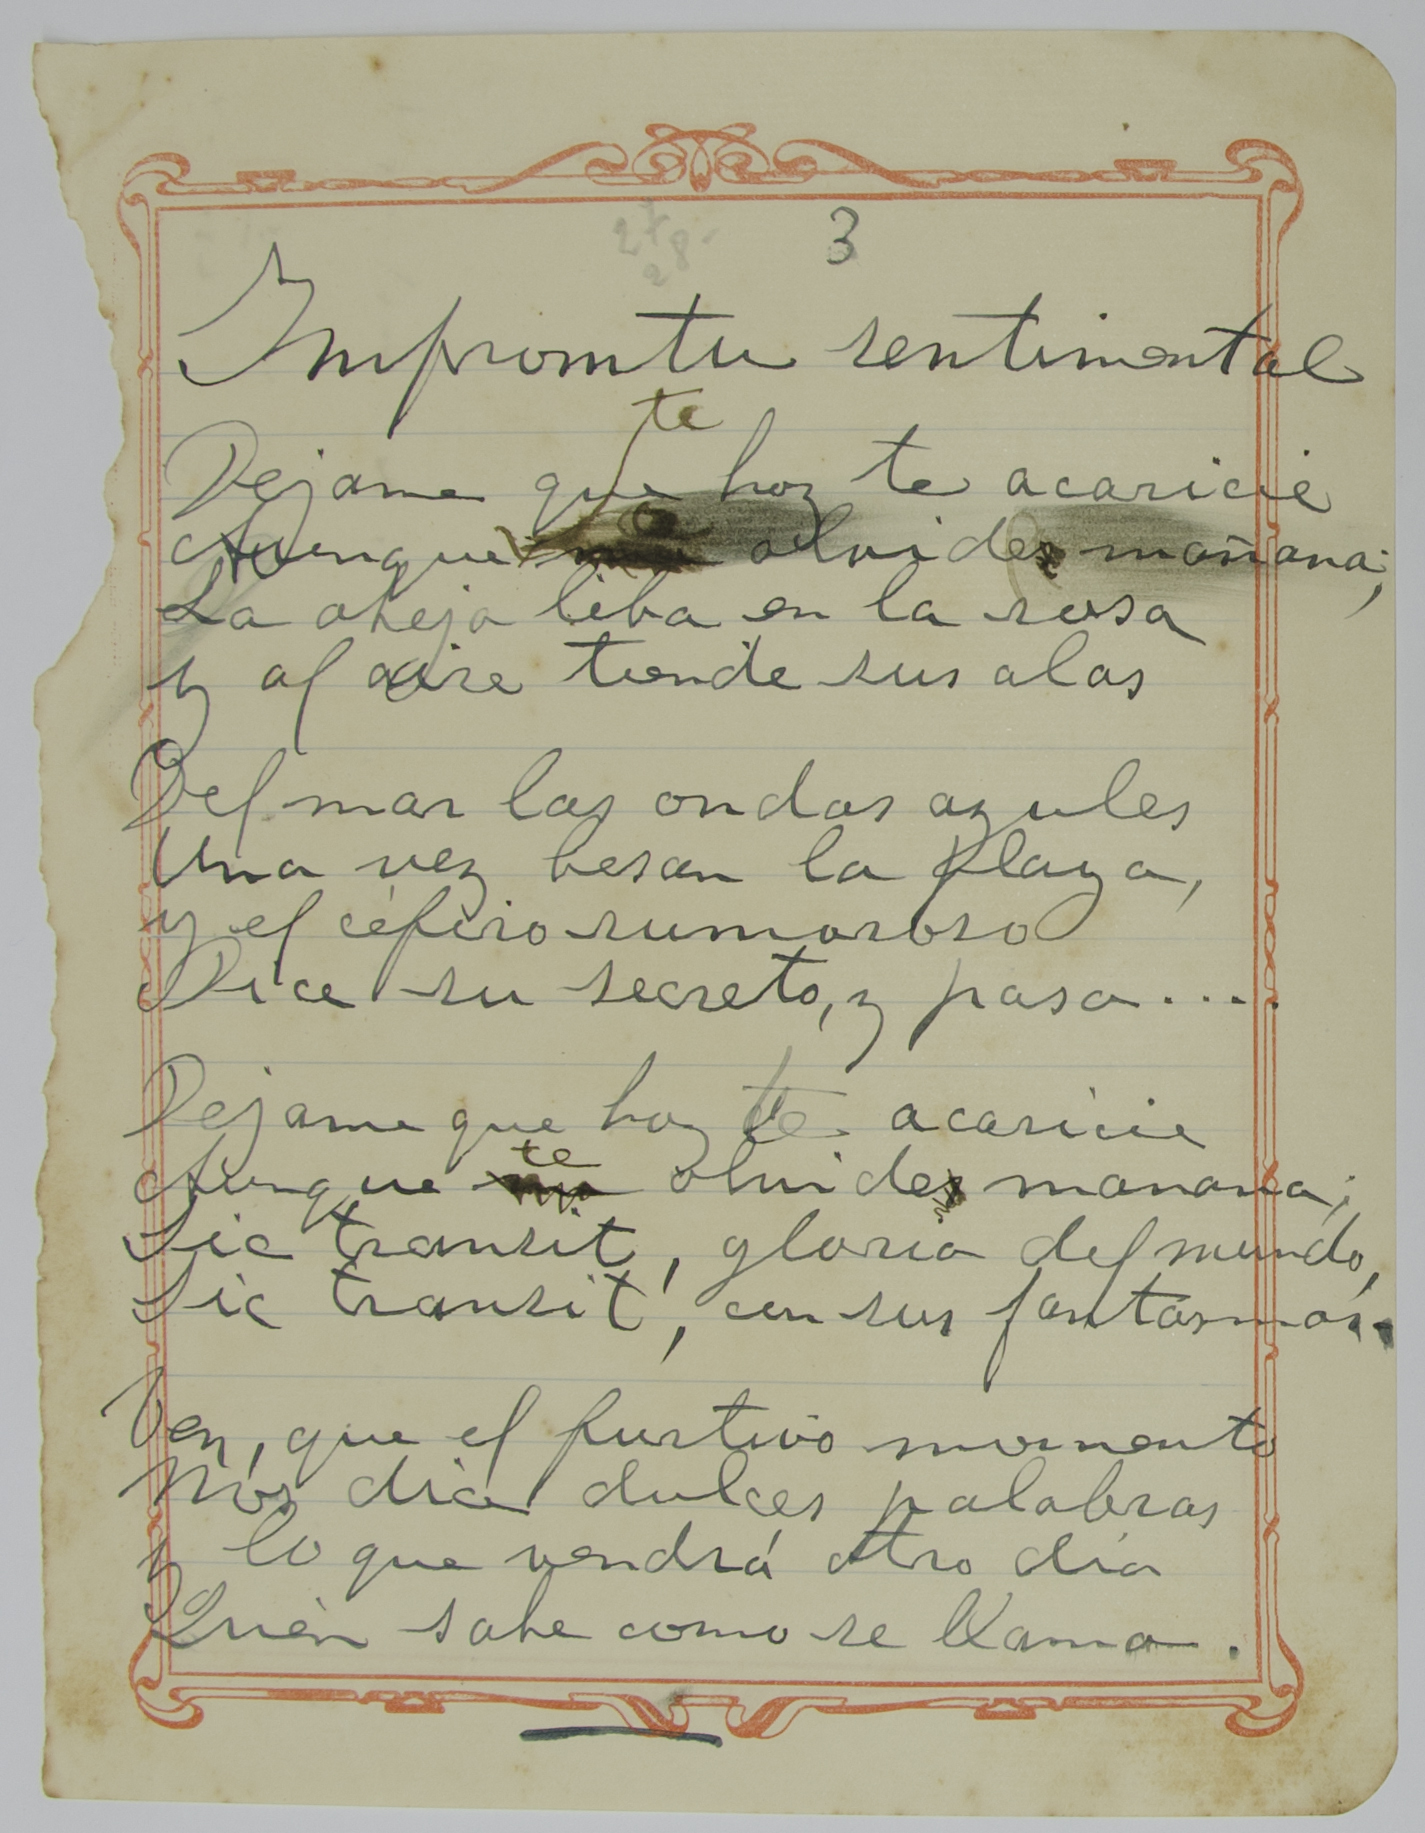 3
Impromtu sentimental
te
Dejame que hoy te acaricie
Aunque olvide mañana;
La abeja liba en la rosa
y al aire tiende sus alas
Del mar las ondas azules
Una vez besan la playa,
y el céfiro rumoroso
Dice su secreto, y pasa....
Dejame que hoy te acaricie
te
Aunque olvide manana;
Sic transit, gloria del mundo,
Sic transit, con sus fantasmas.
Ven, que el furtivo momento
Nos dice dulces palabras
y lo que vendrá otro día
Quién sabe como se llama.